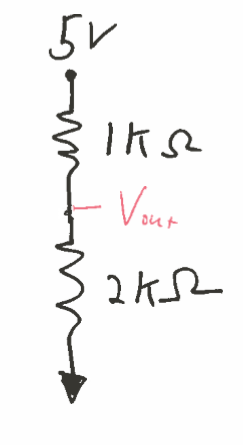 5V
1KΩ
Vout
2KΩ